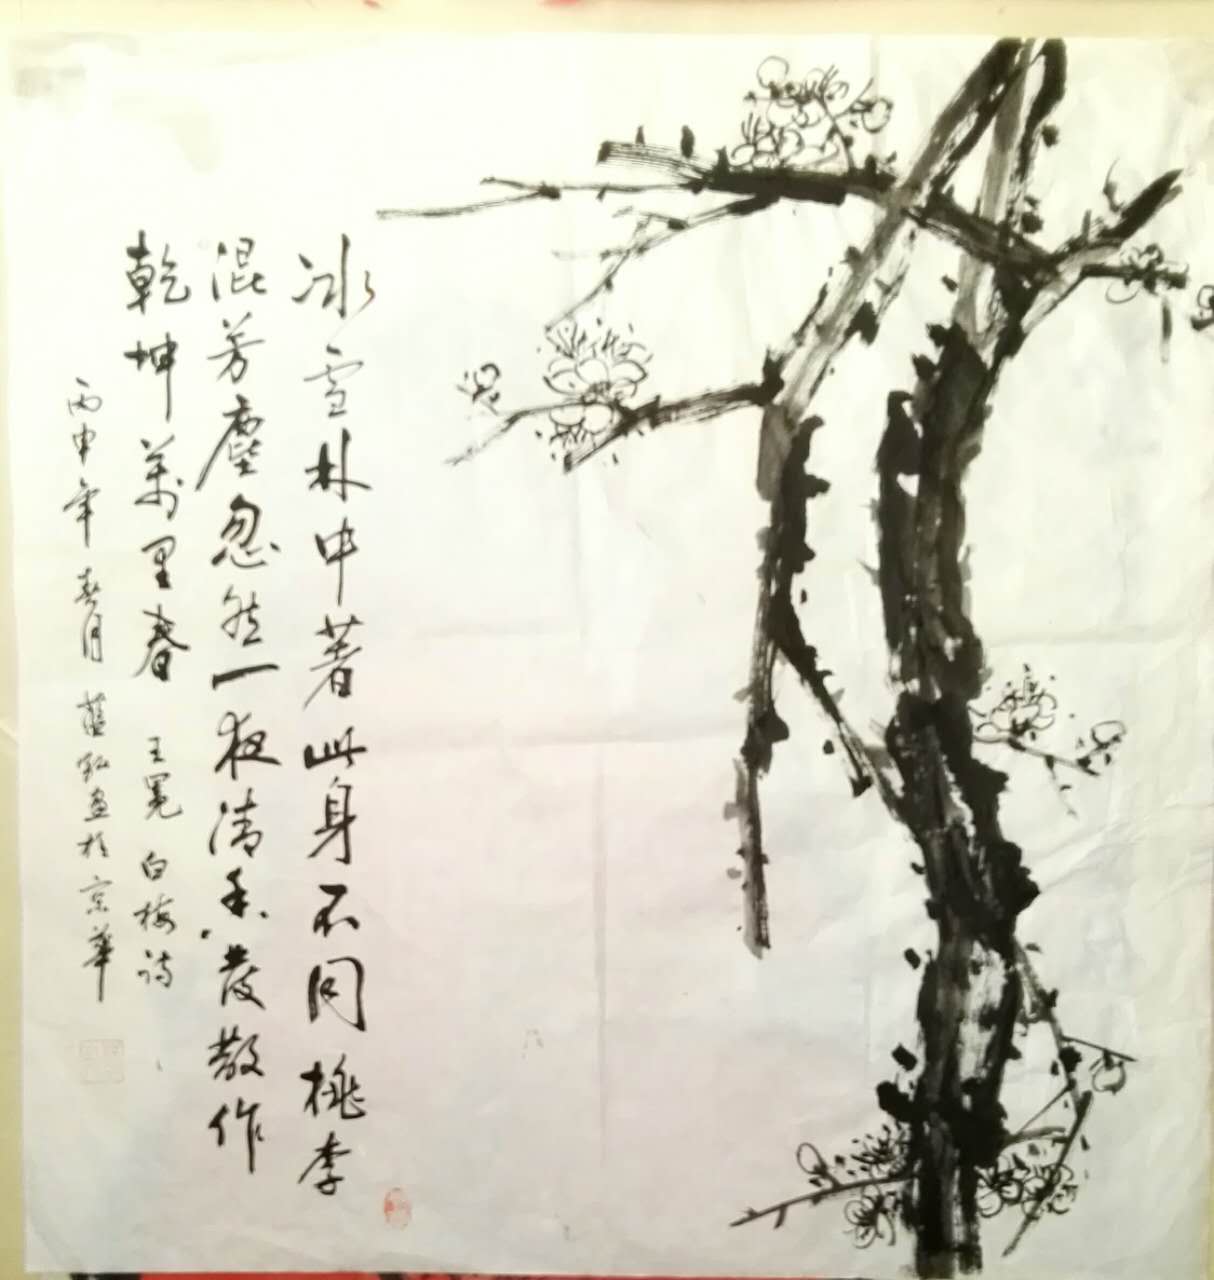 冰雪林中著此身不同桃李
混芳塵忽然一夜清香發散作
乾坤萬里春 王冕 白梅詩
丙申年春月 畫於京華